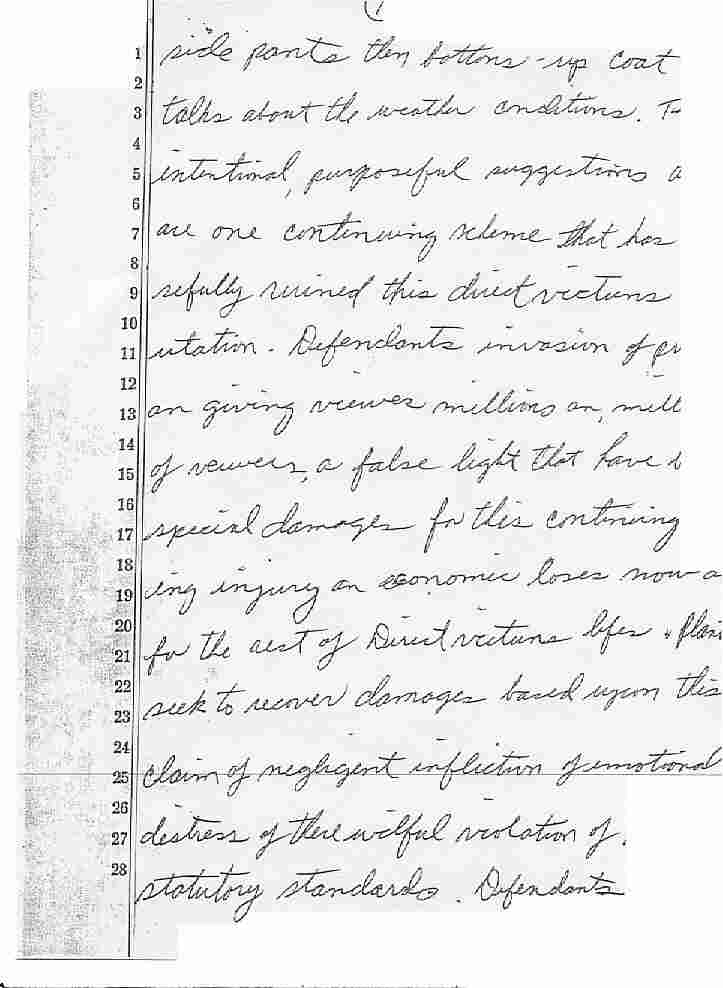 1 side pants then bottons-up coat
2
3 talks about the weather conditions. T
4
5 intentional, purposeful suggestions a
6
7 are one continuing scheme that has
8
9 sefully ruined this direct victims
10
11 utation. Defendants invasion of pr
12
13 an giving viewer millions an, mill
14
15 of veiwers, a false light that have
16
17 special damages for this continuing
18
19 ing injury an economic loses now a
20
21 for the rest of Direct victims lifes. Plain
22
23 seek to recover damages based upon this
24
25 claim of negligent infliction of emotional
26
27 distress of there wilful violation of.
28
statutory standards. Defendants